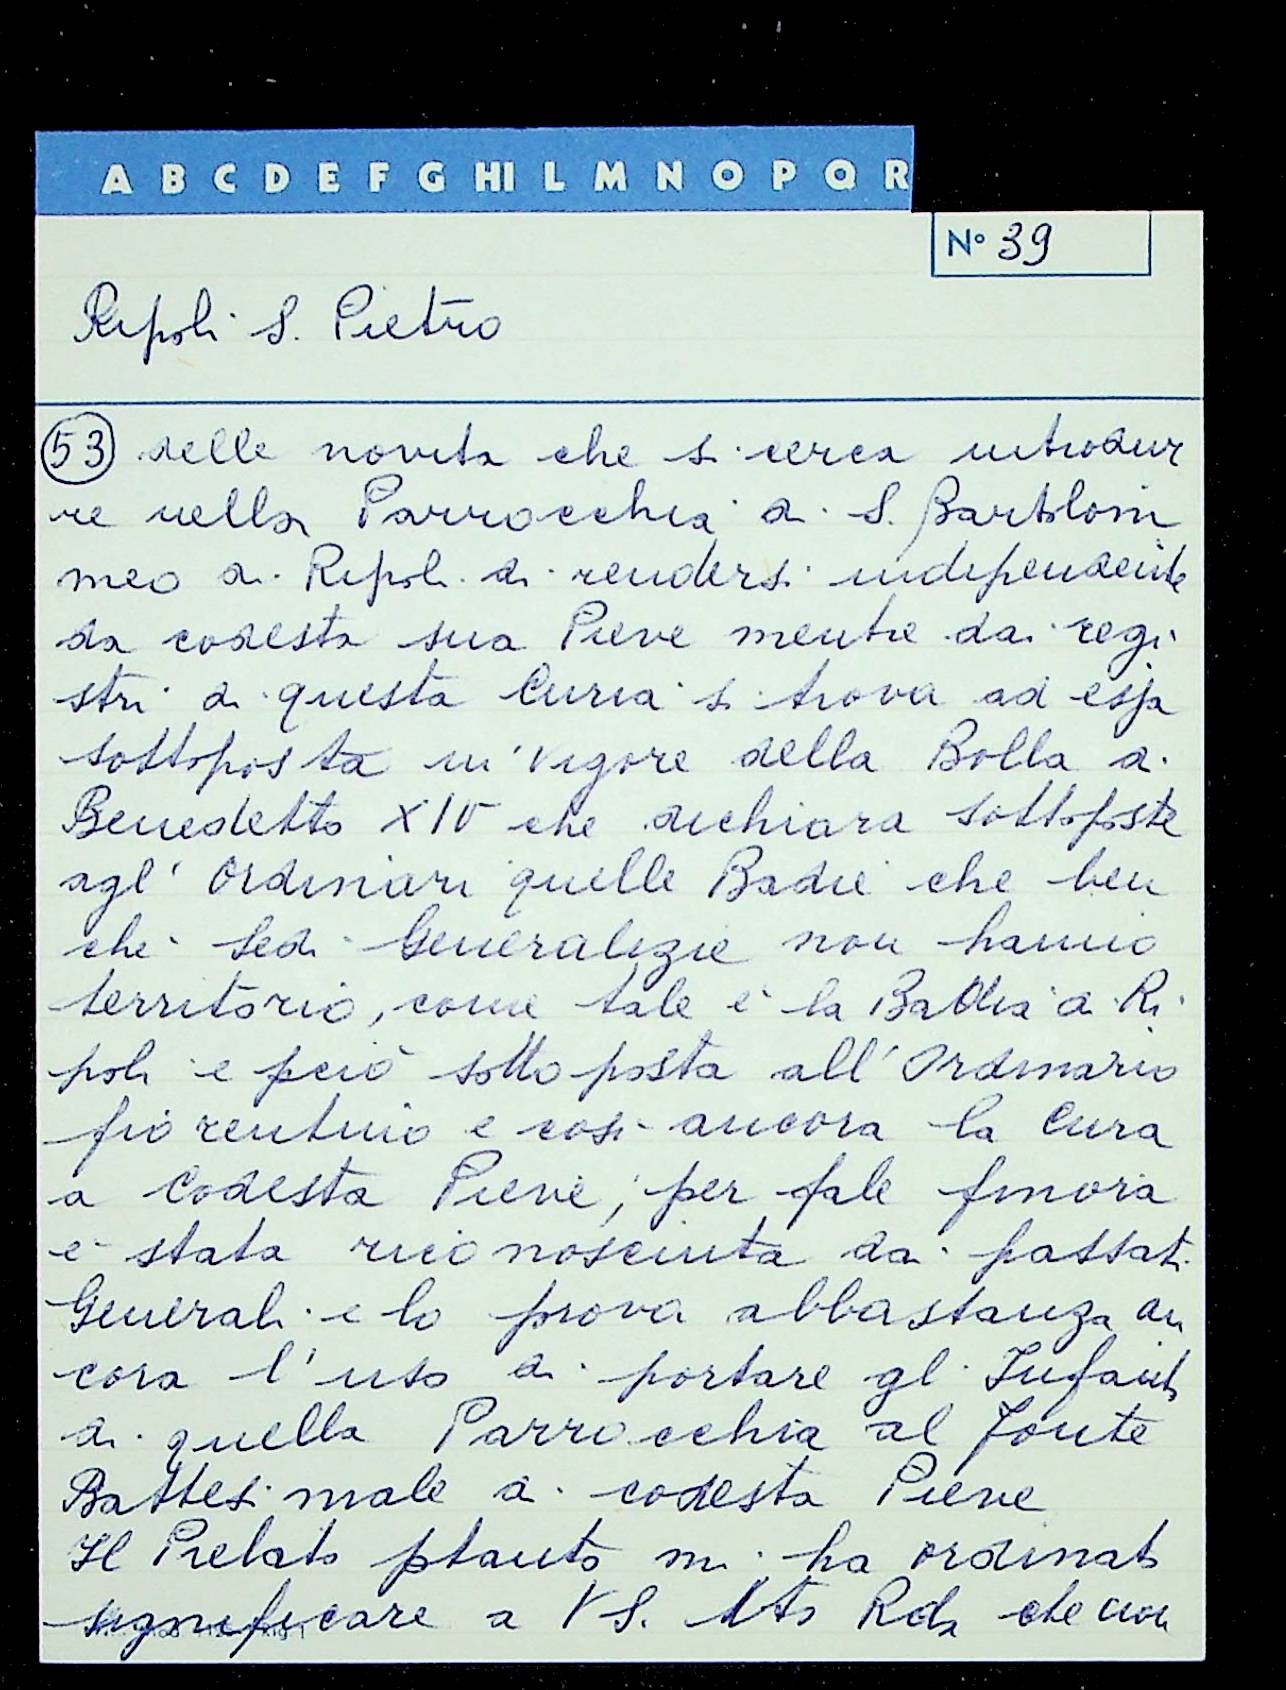 A B C D E F G HI L M N O P Q R
N° 39
Ripoli S. Pietro
53 delle novità che si cerca introdur
re nella Parrocchia di S. Bartolom
meo di Ripoli di rendersi independente
da codesta sua Pieve mentre dai regi
stri di questa Curia si trova ad essa
sottoposta in vigore della Bolla di
Benedetto XIV che dichiara sottoposte
agl' Ordinari quelle Badie che ben
che Sedi Generalizie non hanno
territorio, come tale è la Badia di Ri
poli e però sottoposta all' Ordinario
fiorentino e così ancora la Cura
a Codesta Pieve; per tale finora
è stata riconosciuta dai passati
Generali e lo prova abbastanza an
cora l' uso di portare gl' Infanti
di quella Parrocchia al Fonte
Battesimale di codesta Pieve
Il Prelato ptauto mi ha ordinato
significare a VS. Mto Rda che non